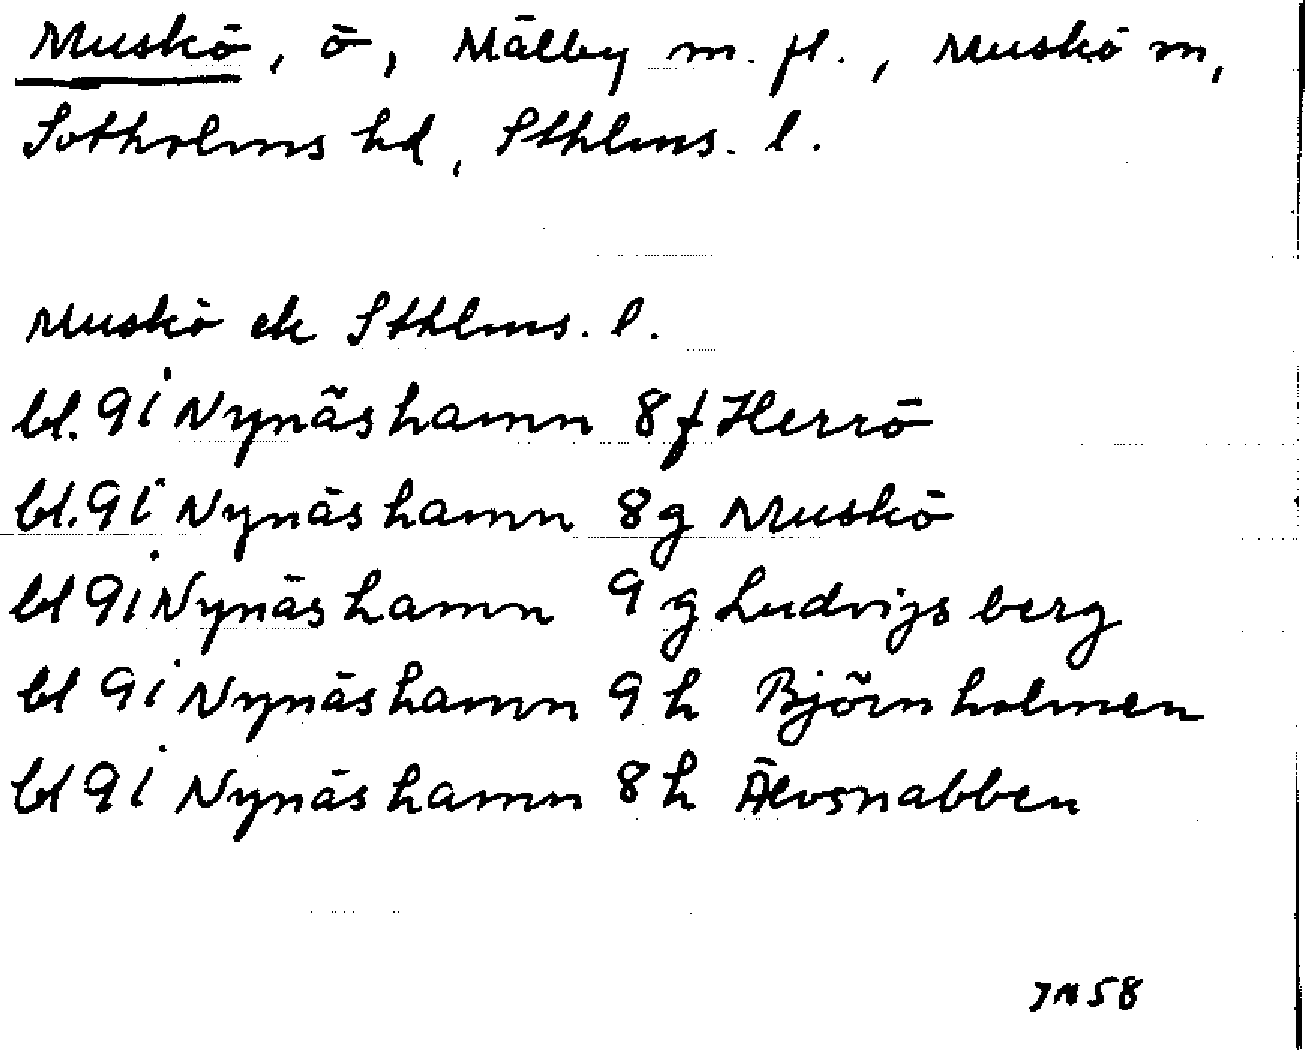 Muskö, ö, Mälby m. fl., Muskö sn,
Sotholms hd, Sthlms. l.
Muskö ek Sthlms. l.
bl. 9i Nynäshamn 8f Herrö
bl. 9i Nynäshamn 8g Muskö
bl 9i Nynäshamn 9g Ludvigsberg
bl 9i Nynäshamn 9h Björnholmen
bl 9i Nynäshamn 8h Älvsnabben
58